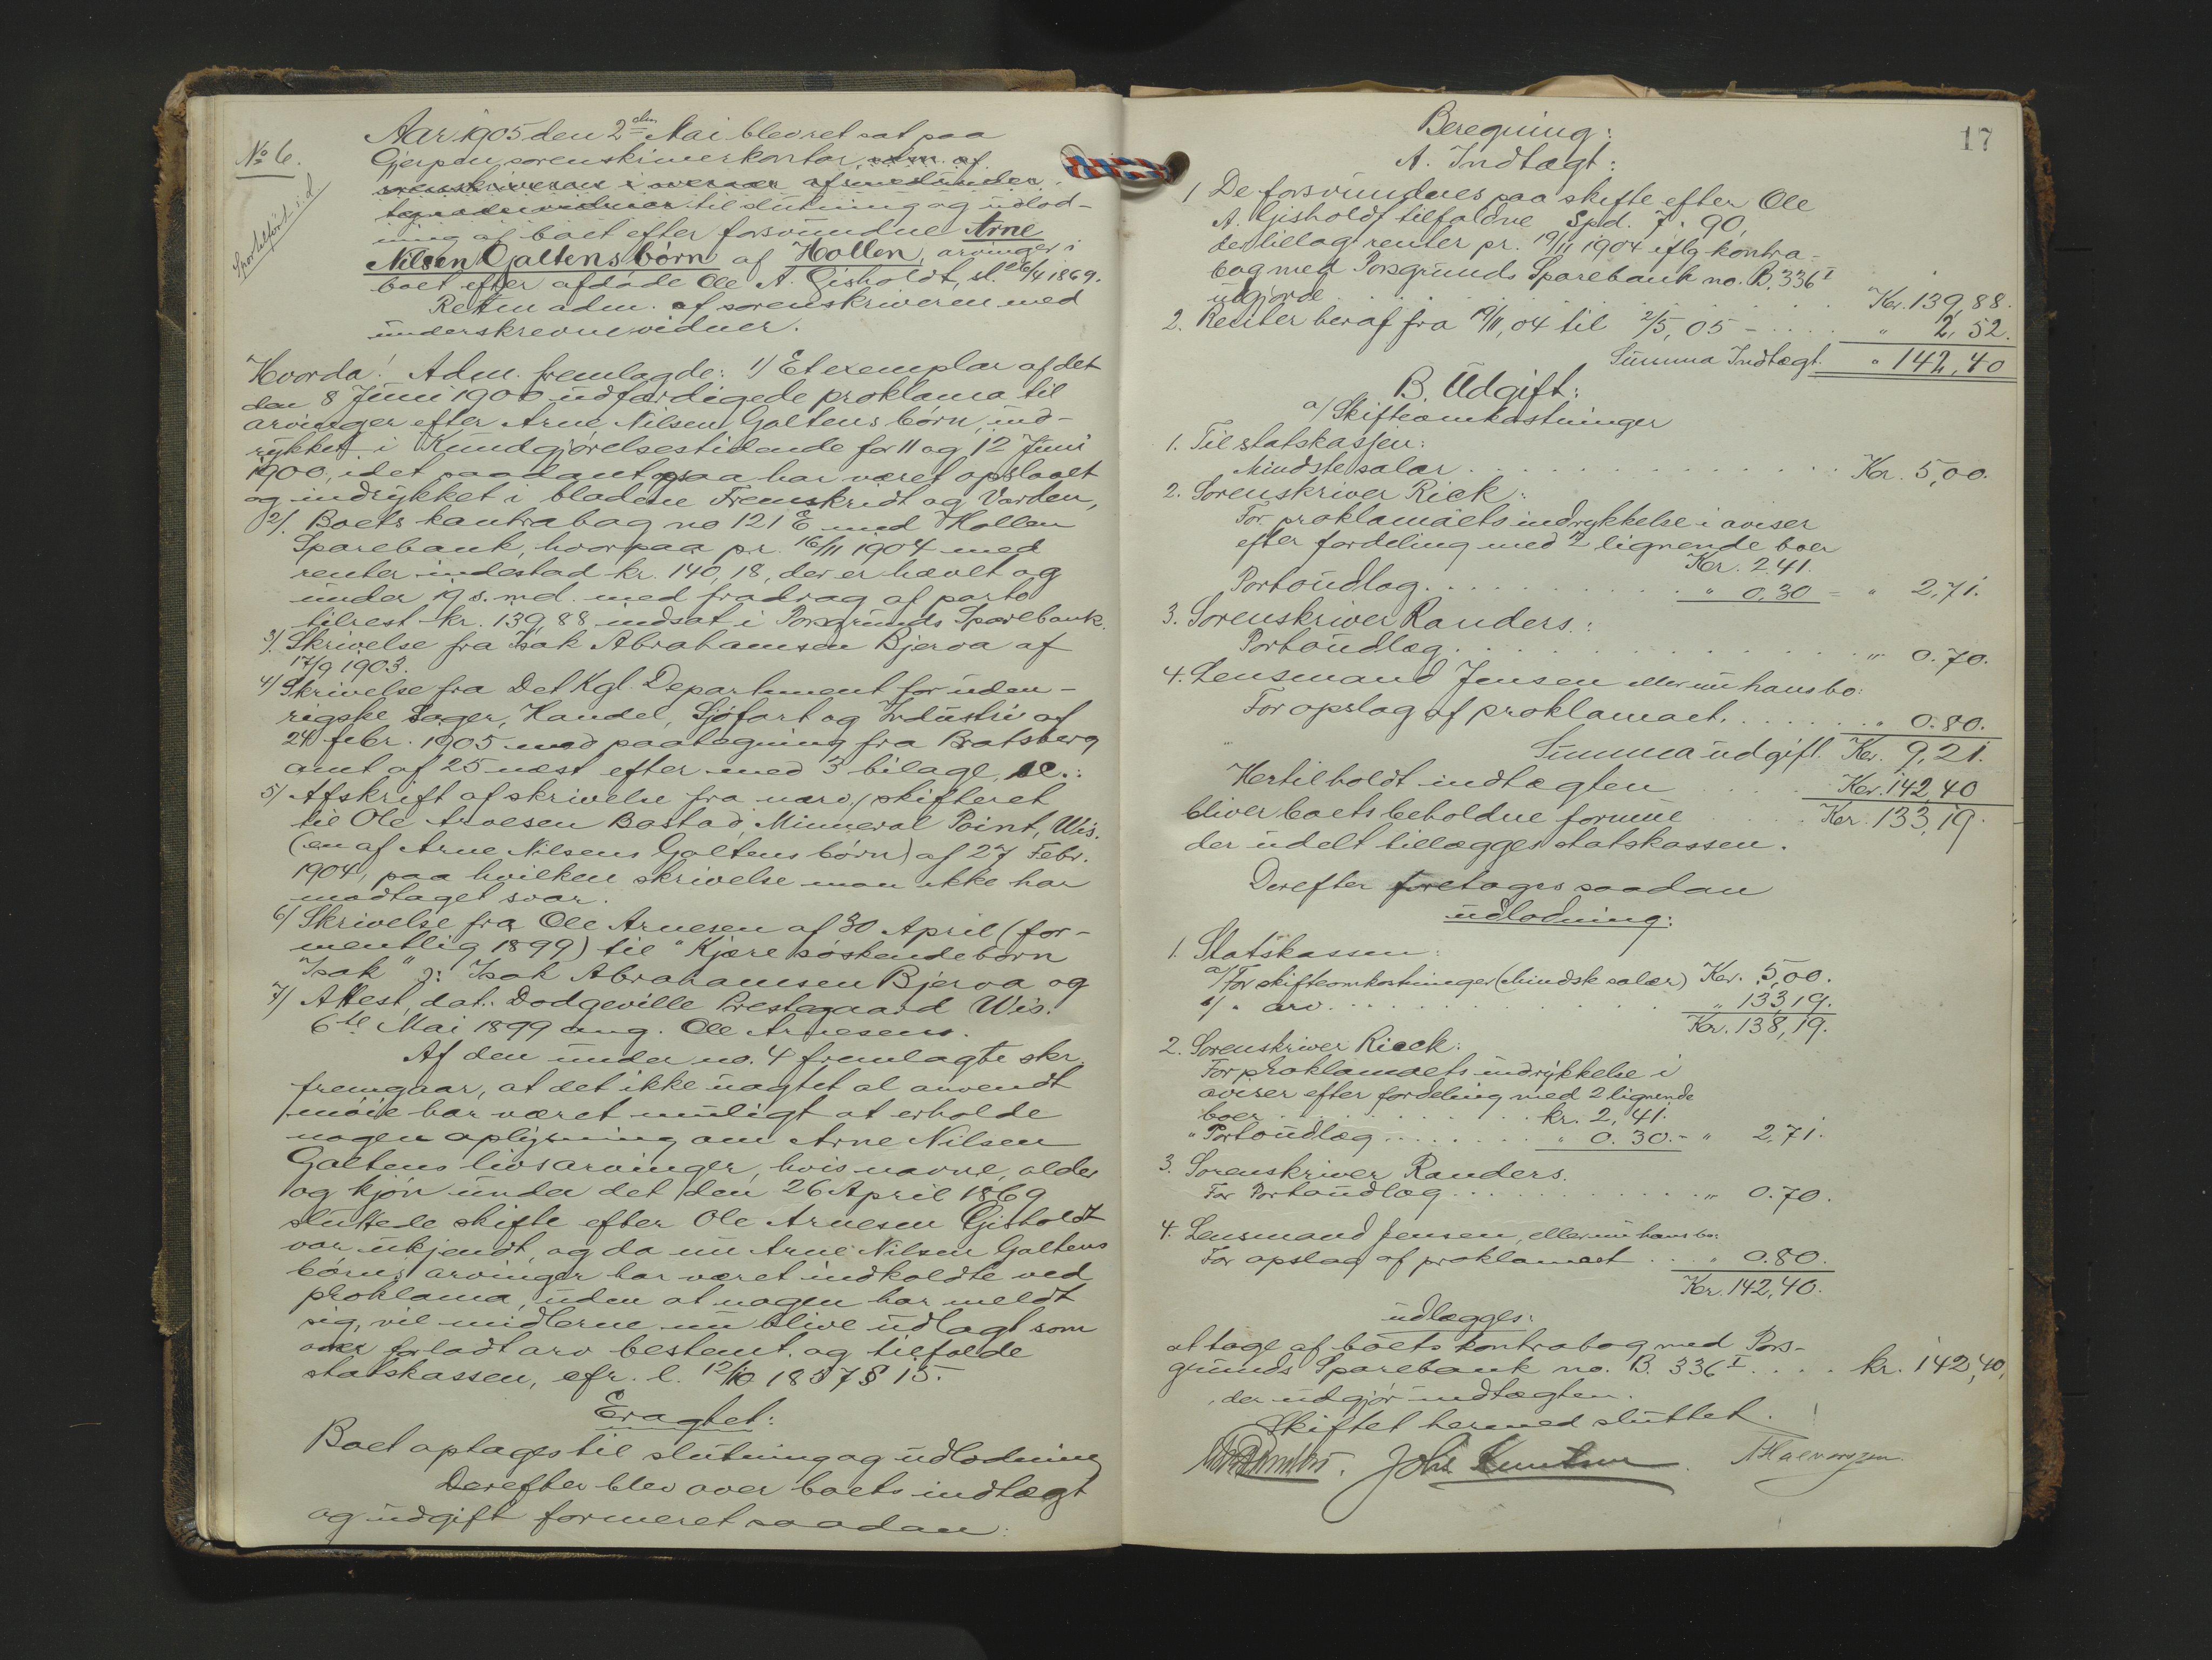 No 6.
Sportelført i d
Aar 1905 den 2den Mai blev ret sat paa
Gjerpen sorenskriverkontor, adm. af
sorenskriveren i overvær af medunder-
tegnede vidner til slutning og udlod-
ning af boet efter forsvundne Arne
Nilsen Galtens børn af Hollen, arvinger i
boet efter afdøde Ole A. Gisholdt, sl. 26/4 1869.
Retten adm. af sorenskriveren med
underskrevne vidner.
Hvorda! Adm. fremlagde: 1) Et exemplar af det
den 8 Juni 1900 udfærdigede proklama til
arvinger efter Arne Nilsen Galtens børn, ind-
rykket i Kundgjørelsestidende for 11 og 12 Juni
1900, idet saadant ogsaa har været opslaaet
og indrykket i bladene Fremskridt og Varden,
2). Boets kontrabog no 121 E med Hollen
Sparebank, hvorpaa pr. 16/11 1904 med
renter indestod kr. 140,18, der er hævet og
under 19 s. md. med fradrag af porto
tilrest kr. 139,88 indsat i Porsgrunds Sparebank.
3). Skrivelse fra Isak Abrahamsen Bjerva af
17/9 1903.
4) Skrivelse fra Det Kgl. Department for uden-
rigske Sager, Handel, Sjøfart og Industri af
24 febr. 1905 med paategning fra Bratsberg
amt af 25 næst efter med 3 bilage, sc.:
5) Afskrift af skrivelse fra nærv. skifteret
til Ole Arnesen Bostad, Minneral Point, Wis.
(en af Arne Nilsens Galtens børn) af 27 Febr.
1904, paa hvilken skrivelse man ikke har
modtaget svar.
6) Skrivelse fra Ole Arnesen af 30 April (for-
mentlig 1899) til "Kjære søskendebørn
Isak" ɔ: Isak Abrahamsen Bjerva og
7) Attest, dat. Dodgeville Prestegaard Wis.
6te Mai 1899 ang. Ole Arnesens.
Af den under no. 4 fremlagte skr.
fremgaar, at det ikke uagtet al anvendt
møie har været muligt at erholde
nogen oplysning om Arne Nilsen
Galtens livsarvinger, hvis navne, alder
og kjøn under det den 26 April 1869
sluttede skifte efter Ole Arnesen Gisholdt
var ukjendt, og da nu Arne Nilsen Galtens
børns arvinger har været indkaldte ved
proklama, uden at nogen har meldt
sig, vil midlerne nu blive udlagt som
forladt arv bestemt. og tilfalde
statskassen, cfr. l. 12/10 1857 § 15.
Eragtet:
Boet optages til slutning og udlodning
Derefter blev over boets indtægt
og udgift formeret saadan:
17
Beregning:
A. Indtægt:
1 De forsvundnes paa skifte efter Ole
A. Gisholdt tilfaldne Spd. 7. 90,
der tillagt renter pr. 19/11 1904 iflg kontra-
bog med Porsgrunds Sparebank no. B. 336 I
udgjorde . . . . Kr. 139,88.
2. Renter heraf fra 19/11, 04 til 2/5, 05 - . . . " 2,52.
Summa Indtægt " 142,40
B. Udgift:
a/ Skifteomkostninger
1. Til statskassen:
Mindste salær . . . . Kr. 5,00.
2. Sorenskriver Rick:
For proklamaets indrykkelse i aviser
efter fordeling med 2 lignende boer
Kr. 2,41.
Portoudlæg . . . . " 0,30 = " 2,71.
3. Sorenskriver Randers:
Portoudlæg . . . . " 0.70.
4. Lensmand Jensen eller nu hans bo:
For opslag af proklamaet. . . . " 0.80.
Summa udgift Kr. 9,21.
Hertil holdt indtægten . . . Kr. 142,40
bliver boets beholdne formue . . Kr. 133,19.
der udelt tillægges statskassen.
Derefter foretages saadan
udlodning:
1. Statskassen:
a/ For skifteomkostninger (Mindste salær) Kr. 5,00.
b/ " arv . . . . " 133,19.
Kr. 138,19.
2. Sorenskriver Rieck:
For proklamaets indrykkelse i
aviser efter fordeling med 2 lignende
boer . . . . kr. 2,41.
" Portoudlæg . . . . " 0.30. - " 2,71.
3. Sorenskriver Randers.
For Portoudlæg . . . . " 0.70.
4. Lensmand Jensen, eller nu hans bo:
For opslag af proklamaet . . " 0.80.
Kr. 142,40.
udlægges:
at tage af boets kontrabog med Pors-
grunds Sparebank no. B. 336 I . . . . kr. 142,40,
der udgjør indtægten.
Skiftet hermed sluttet.
Johs Knutsen. A Halvorsen